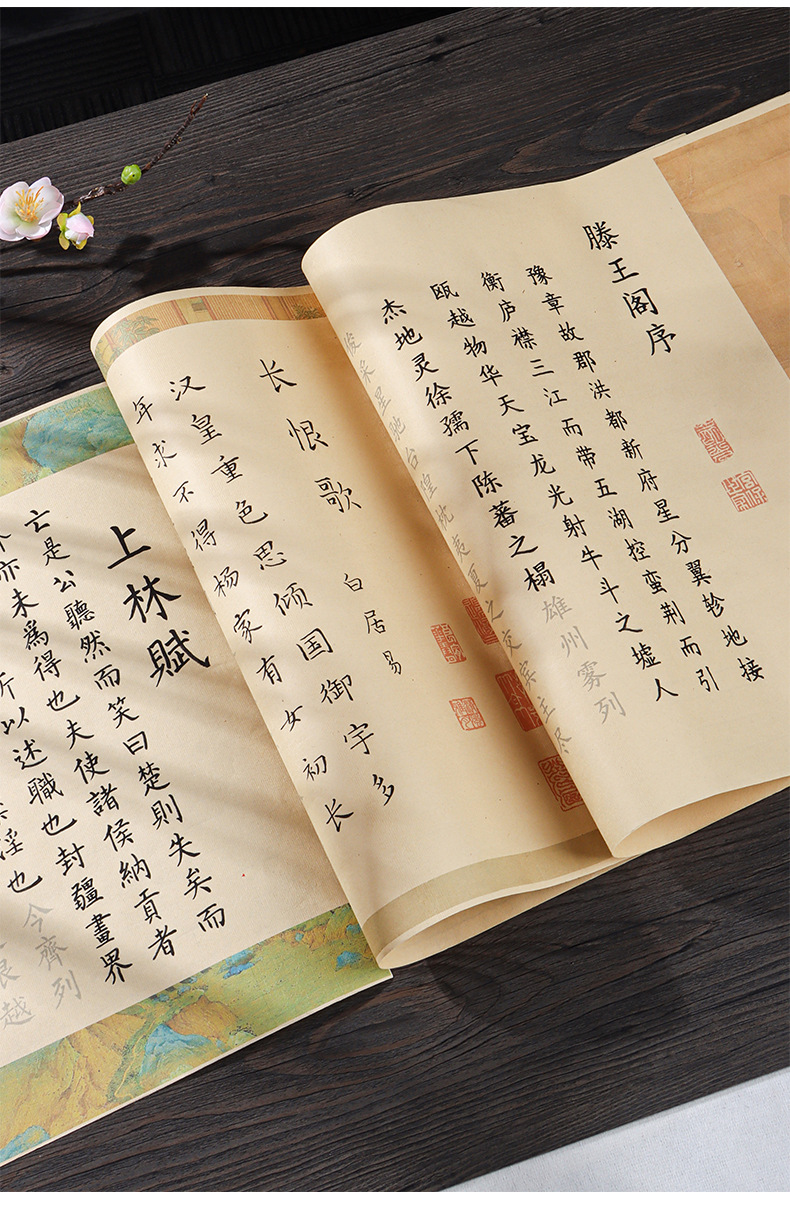 滕王阁序
豫章故郡洪都新府星分翼轸地接
衡庐襟三江而带五湖控蛮荆而引
瓯越物华天宝龙光射牛斗之墟人
杰地灵徐孺下陈蕃之榻雄州雾列
俊采星驰台隍枕夷夏之交宾主尽
长恨歌
白居易
汉皇重色思倾国御宇多
年求不得杨家有女初长
上林賦
亡是公聽然而笑曰楚則失矣而
亦未爲得也夫使諸侯納貢者
所以述職也封疆畫界
淫也今齊列
越